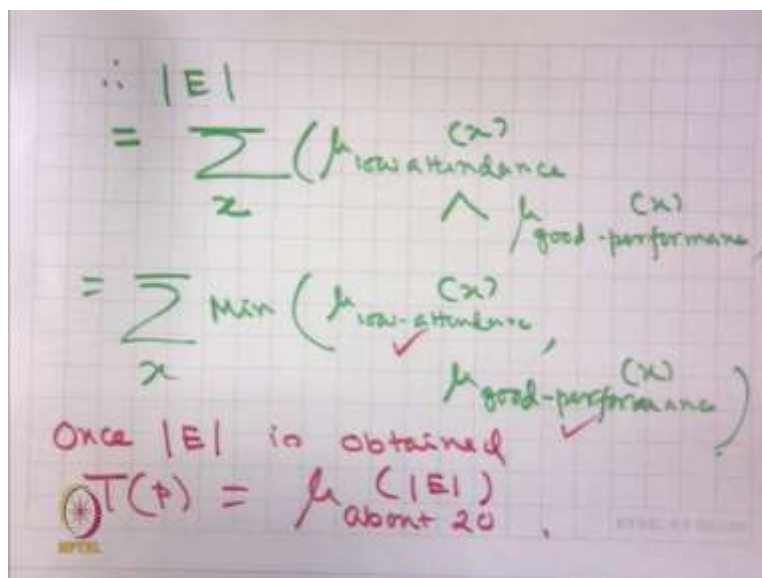 ∴ |E|
= Σ (μ low attendance (x)
x ∧ μ good-performanc (x)
= Σ Min ( μ low-attendance (x) ,
x μ good-performance (x) )
Once |E| is obtained
T(p) = μ about 20 (|E|) .
NPTEL